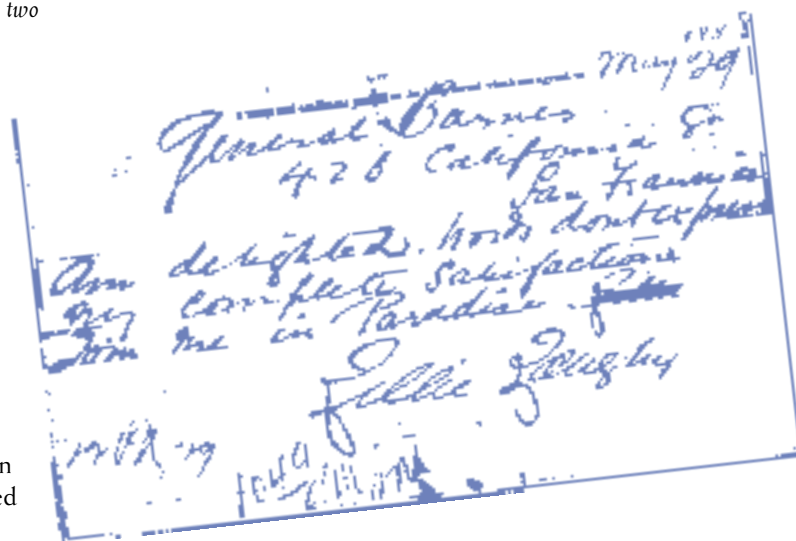 two
May 29
General Barnes
426 California St
San Francis
Am delighted. Words dont express
my complete satisfaction
Join me in Paradise
Lillie
n
ed